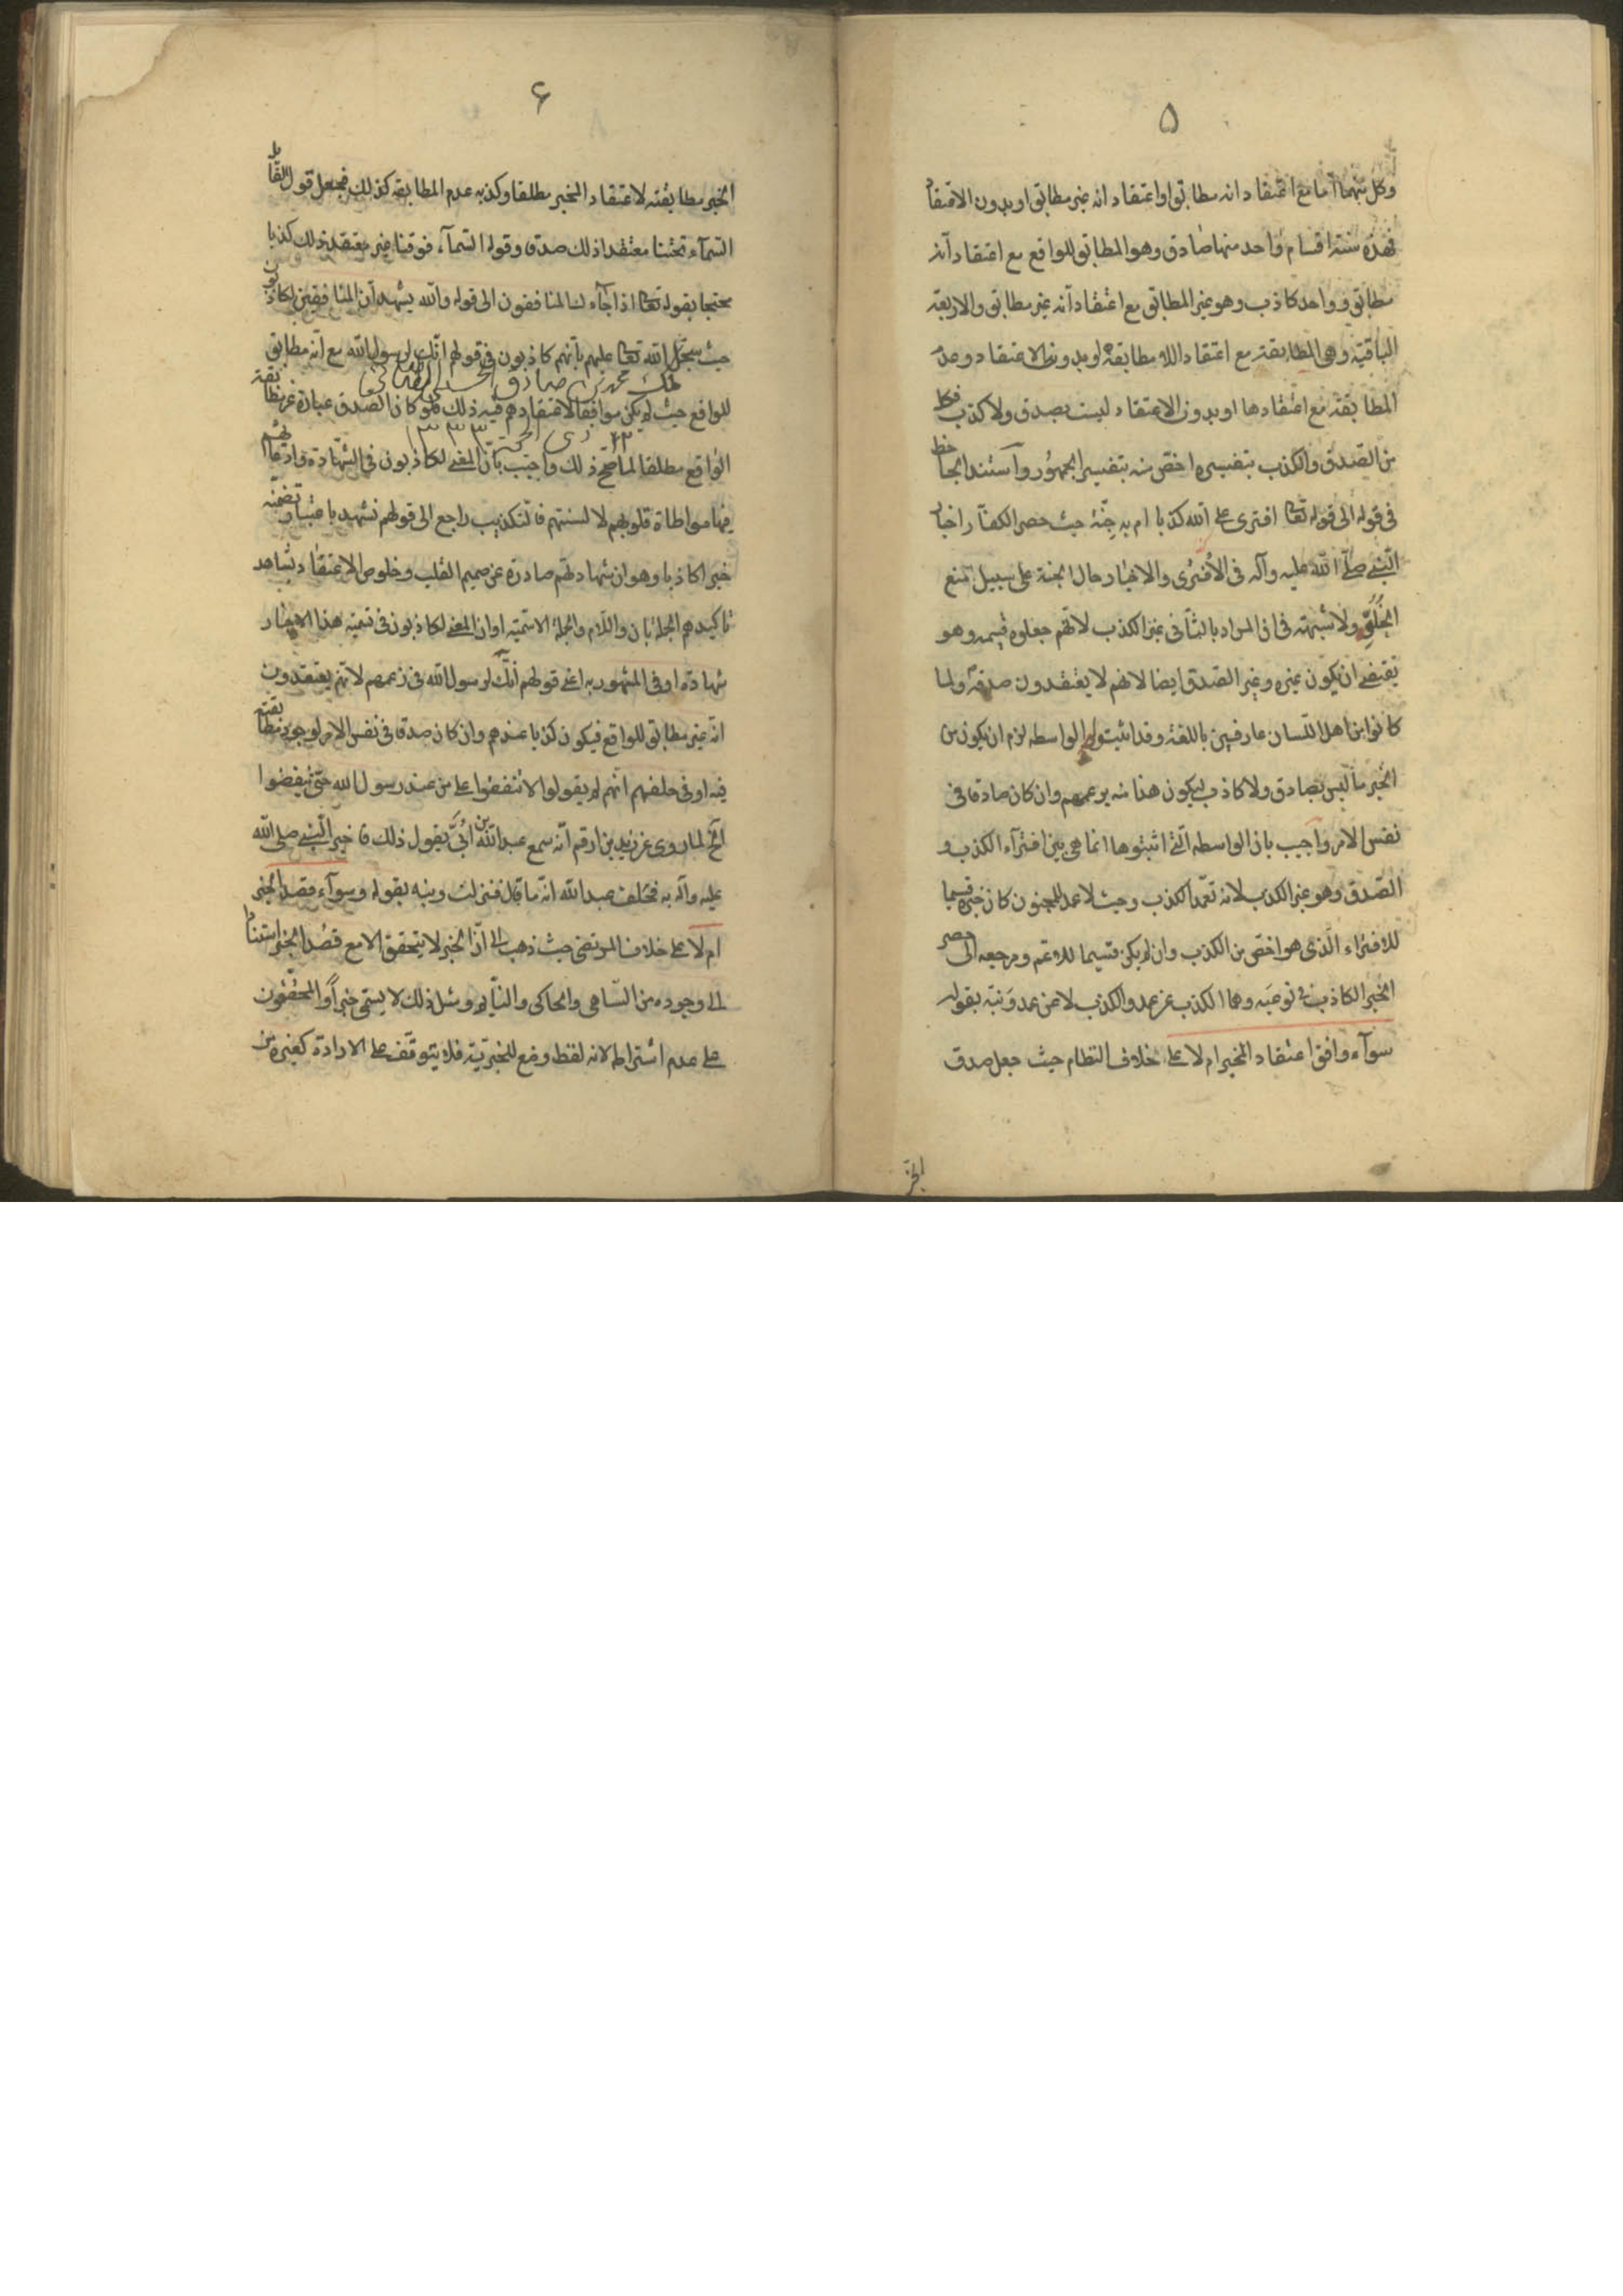 ٥
وكل منهما اما مع اعتقاد انه مطابق او اعتقاد انه غير مطابق او بدون الاعتقاد
فهذه ستة اقسام واحد منها صادق وهو المطابق للواقع مع اعتقاد انه
مطابق وواحد كاذب وهو غير المطابق مع اعتقاد انه غير مطابق والاربعة
الباقية وهي المطابقة مع اعتقاد اللا مطابقة او بدون الاعتقاد وعدم
المطابقة مع اعتقادها او بدون الاعتقاد ليست بصدق ولا كذب فكل
من الصدق والكذب بتفسيره اخص منه بتفسير الجمهور واستند الجاحظ
في قوله الى قوله تعا افترى على الله كذبا ام به جنة حيث حصر الكفار اخبار
النبي صلى الله عليه وآله في الافترى والاخبار حال الجنة على سبيل منع
الخلو ولا شبهة في ان المراد بالثاني غير الكذب لانهم جعلوه قسيمه وهو
يقتضي ان يكون غيره وغير الصدق ايضا لانهم لا يعتقدون صدقه ولما
كانوا من اهل اللسان عارفين باللغة وقد اثبتوا الواسطه لزم ان يكون من
الخبر ما ليس بصادق ولا كاذب ليكون هذا منه بزعمهم وان كان صادقا في
نفس الامر واجيب بان الواسطه التي اثبتوها انما هي بين افترآء الكذب و
الصدق وهو غير الكذب لانه تعمد الكذب وحيث لا عمد للمجنون كان خبره قسيما
للافتراء الذي هو اخص من الكذب وان لم يكن قسيما للاعم ومرجعه الى حصر
الخبر الكاذب في نوعيه وهما الكذب عن عمد والكذب لا عن عمد ونبه بقوله
سوآء وافق اعتقاد المخبر ام لا على خلاف النظام حيث جعل صدق
الخبر
٦
الخبر مطابقته لاعتقاد المخبر مطلقا وكذبه عدم المطابقه كذلك فجعل قول القائل
السمآء تحتنا معتقدا ذلك صدق وقوله السمآء فوقنا غير معتقد ذلك كذبا
محتجا بقوله تعا اذا جآءك المنافقون الى قوله والله يشهد ان المنافقين لكاذبون
حيث سجل الله تعا عليهم بانهم كاذبون في قولهم انك لرسول الله مع انه مطابق
للواقع حيث لم يكن موافقا لاعتقادهم فيه ذلك فلو كان الصدق عبارة عن مطابقة
الواقع مطلقا لما صح ذلك واجيب بان المعنى لكاذبون في الشهادة وادعائهم
فيها مواطاة قلوبهم لالسنتهم فالتكذيب راجع الى قولهم نشهد باعتبار تضمنه
خبرا كاذبا وهو ان شهادتهم صادرة عن صميم القلب وخلوص الاعتقاد بشاهد
تاكيدهم الجملة بان واللام والجملة الاسمية او ان المعنى لكاذبون في تسمية هذا الاخبار
شهادة او في المشهور به اعني قولهم انك لرسول الله في زعمهم لانهم يعتقدون
انه غير مطابق للواقع فيكون كذبا عندهم وان كان صدقا في نفس الامر لوجود مطابقته
فيه او في حلفهم انهم لم يقولوا لا تنفقوا على من عند رسول الله حتى ينفضوا
الخ لما روى عن زيد بن ارقم انه سمع عبد الله بن ابي يقول ذلك فاخبر النبي صلى الله
عليه وآله به فحلف عبد الله انه ما قال فنزلت ونبه بقوله وسوآء قصد الخبر
ام لا على خلاف المرتضى حيث ذهب الى ان الخبر لا يتحقق الا مع قصد الخبر استنادا
الى وجوده من الساهي والحاكي والنايم ومثل ذلك لا يسمى خبرا والمحققون
على عدم اشتراطه لانه لفظ وضع للخبرية فلا يتوقف على الارادة كغيره من